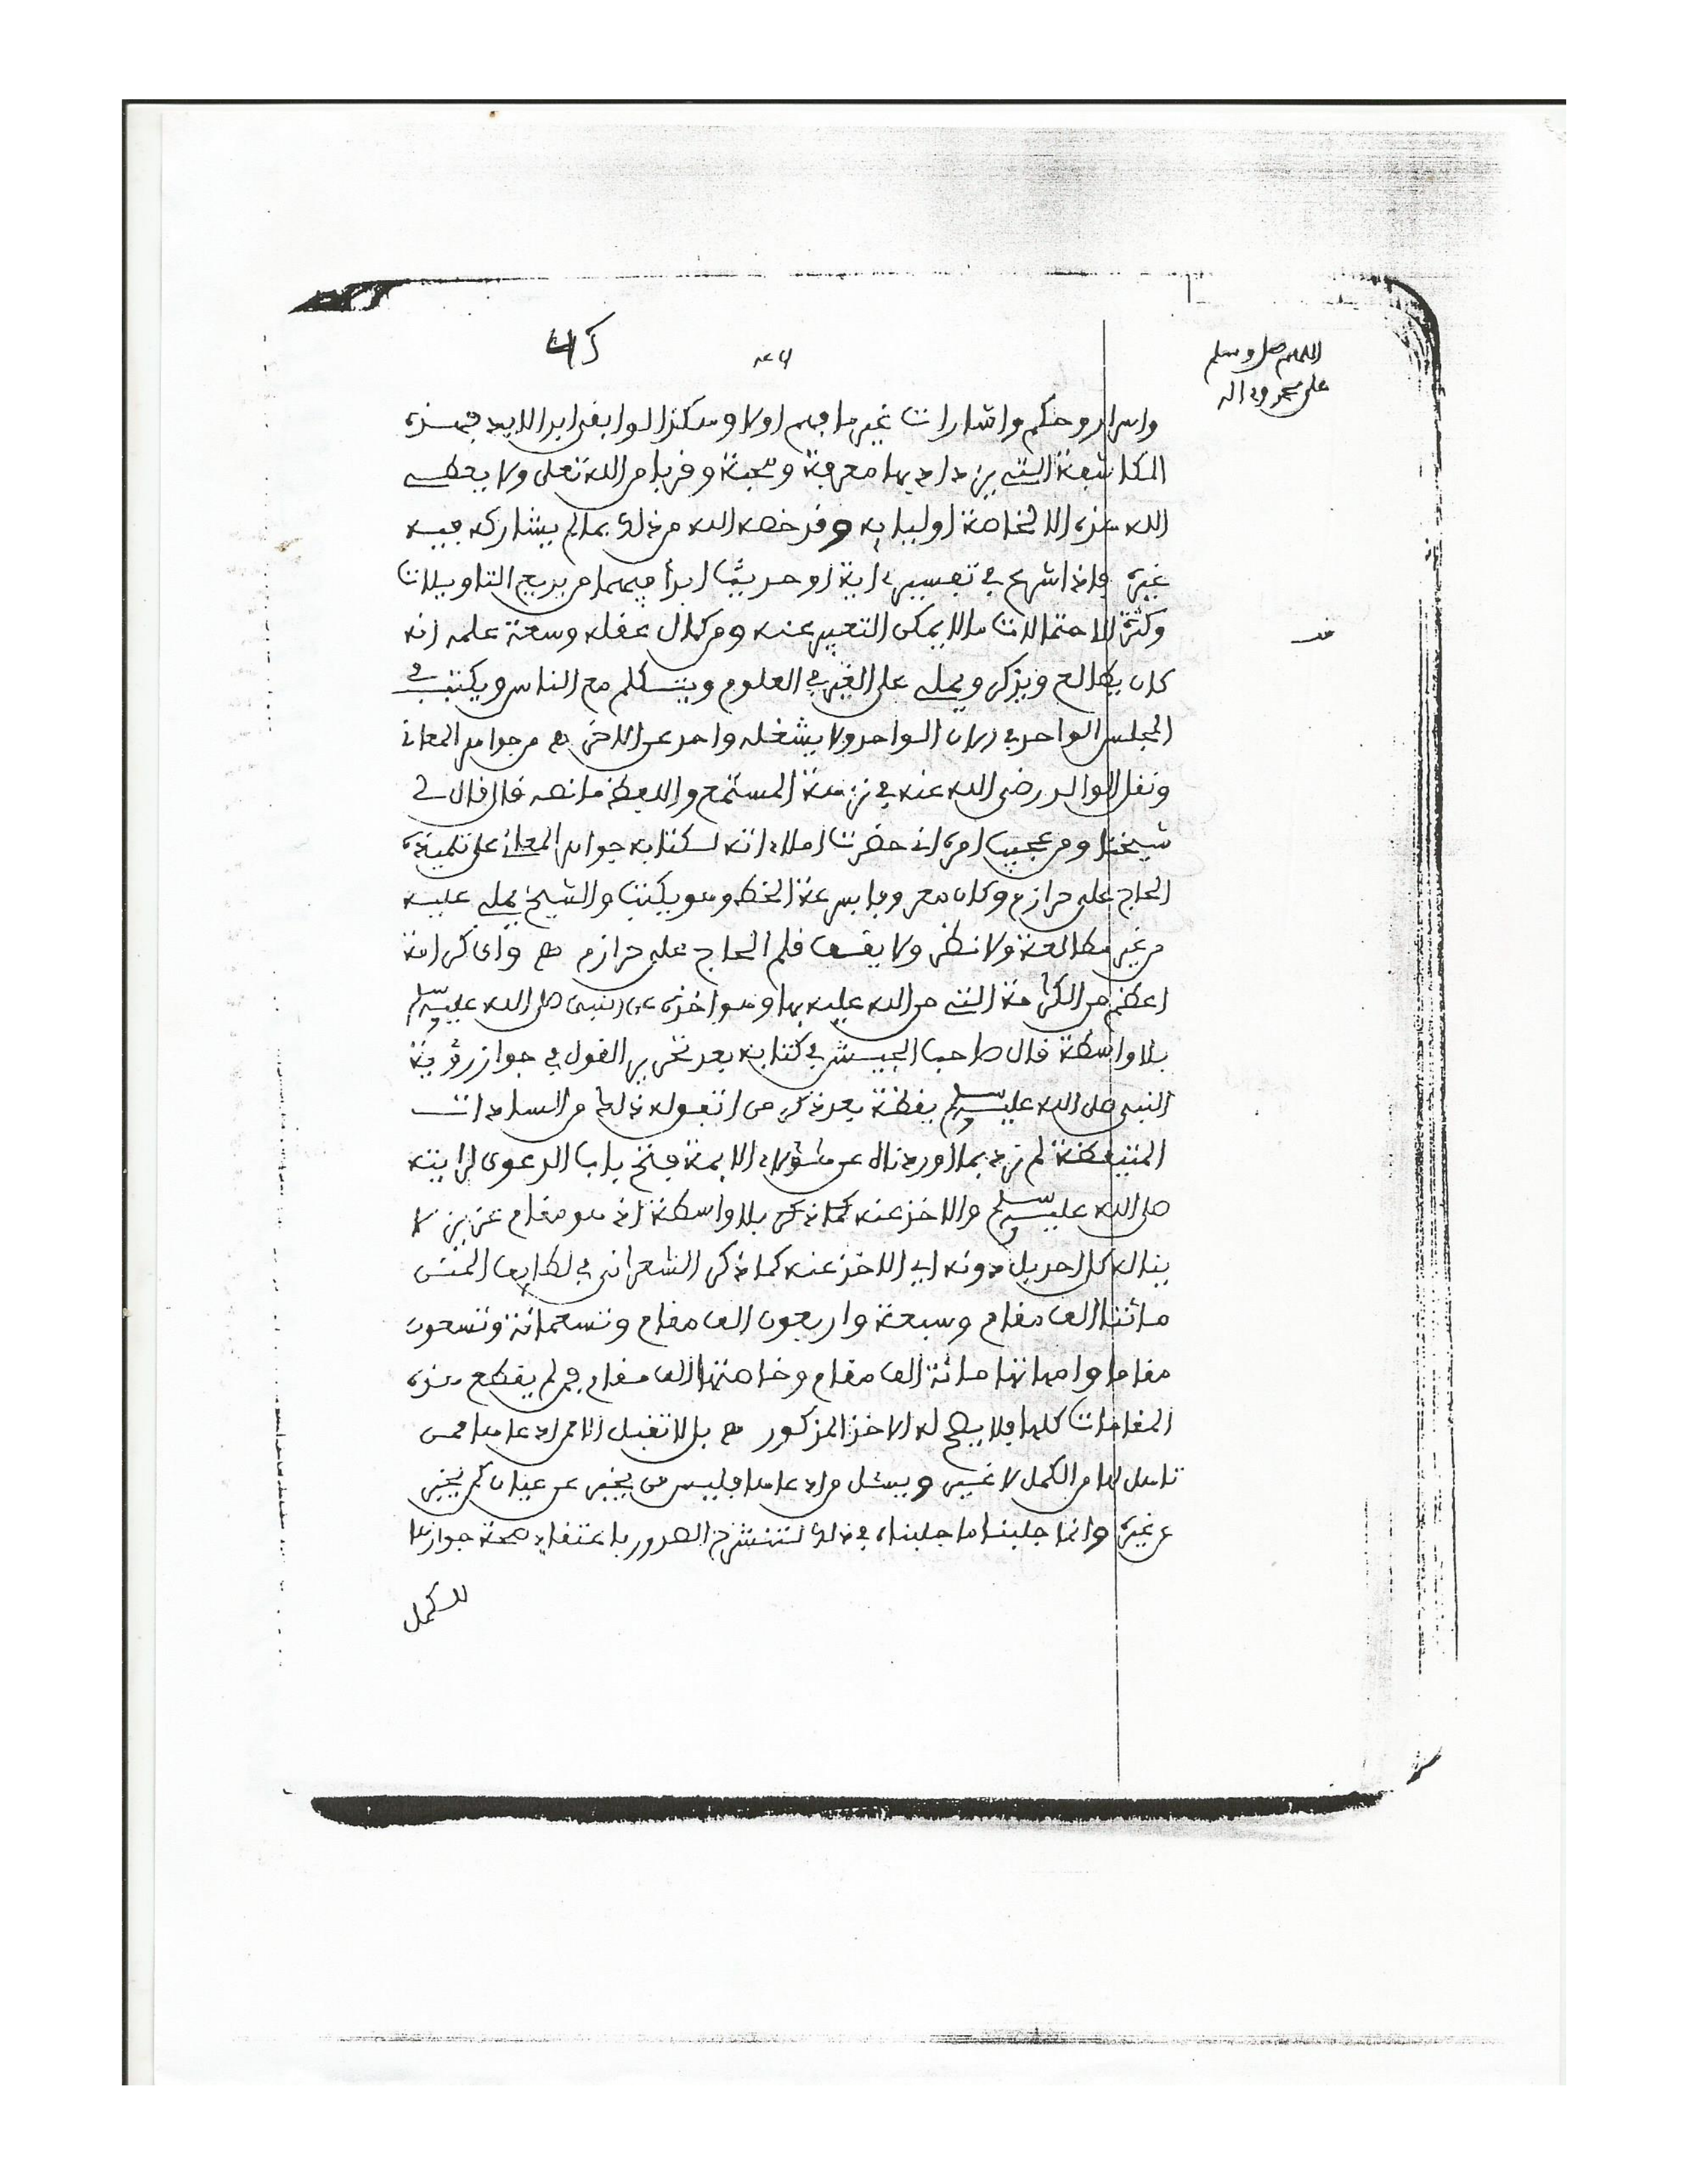 45
اللهم صل وسلم
على محمد وءاله
واسرار وحكم واشارات غير ما فهم اولا وهكذا لو ابقى ابد الابد فهذه
المكاشفة التي يزداد بها معرفة ومحبة وقربا من الله تعلى ولا يعطي
الله هذه الا لخاصة اوليايه وقد خصه الله من ذلك بما لم يشاركه فيه
غيره فاذا شرح في تفسير ءاية او حديث ابدا فيهما من بديع التاويلات
وكثرة الاحتمالات ما لا يمكن التعبير عنه ومن كمال عقله وسعة علمه انه
كان يطالع ويذكر ويملي على الغير في العلوم ويتكلم مع الناس ويكتب في
المجلس الواحد في الان الواحد ولا يشغله واحد عن الاخر هـ من جواهر المعاني
ونقل الوالد رضي الله عنه في نزهة المستمع واللافظ ما نصه قال قال لي
شيخنا ومن عجيب امره اني حضرت املاءاته لكتابه جواهر المعاني على تلميذه
الحاج علي حرازم وكان معروفا بسرعة الخط وهو يكتب والشيخ يملي عليه
من غير مطالعة ولا نظر ولا يقف قلم الحاج علي حرازم هـ واي كرامة
اعظم من الكرامة التي من الله عليه بها وهو اخذه عن النبي صلى الله عليه وسلم
بلا واسطة قال صاحب الجيش في كتابه بعد تحرير القول في جواز رؤية
النبي صلى الله عليه وسلم يقظة بعد ذكر من اتفق له ذلك من السادات
المتيقظة لم نرد بما اوردناه عن هؤلاء الايمة فتح باب الدعوى لرايته
صلى الله عليه وسلم والاخذ عنه كما ذكر بلا واسطة اذ هو مقام عزيز لا
يناله كل احد بل دونه اي الاخذ عنه كما ذكر الشعراني في لطايف المنن
مائتا الف مقام وسبعة واربعون الف مقام وتسعمائة وتسعون
مقاما وامهاتها مائة الف مقام وخاصتها الف مقام فمن لم يقطع هذه
المقامات كلها فلا يصح له الاخذ المذكور هـ بل لا تقبل الا ممن ادعاها ممن
تاهل لها من الكمل لا غير ويسئل من ادعاها فليس من يخبر عن عيان كمن يخبر
عن غيره وانما جلبنا ما جلبناه في ذلك لتنشرح الصدور باعتقاد صحة جوازها
للكمل